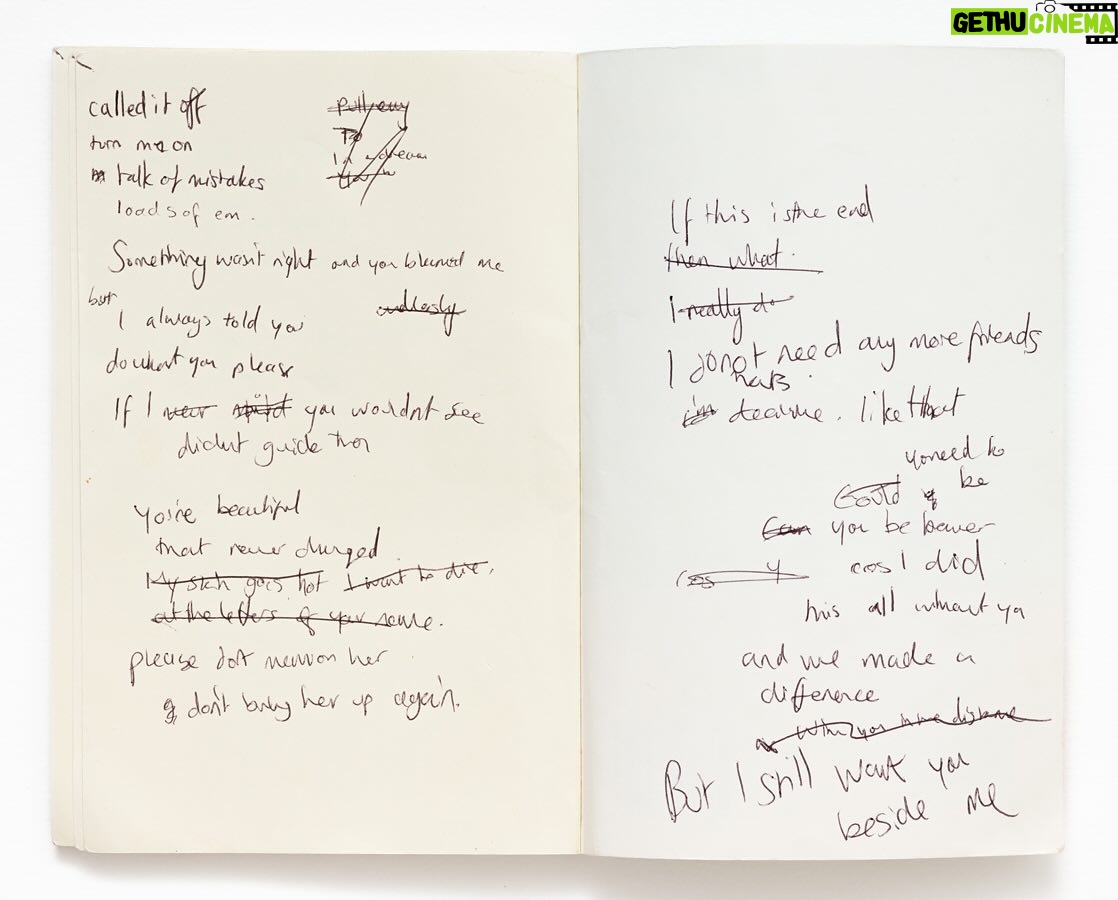 GETHUCINEMA
called it off
turn me on
talk of mistakes
loads of em.
Something wasn't right and you blamed me
endlessly
but
I always told you
do what you please
If I never you wouldnt see
didnt guide
you're beautiful
that never changed
My skin goes hot I want to die,
at the letters of your name.
please dont mention her
& don't bring her up again.
If this is the end
then what.
I really do
I do not need any more friends
thats
decline. like that
you need to
be
Could
Can you be braver
cos y cos I did
this all without ya
and we made a
difference
with you in the distance
But I still want you
beside me